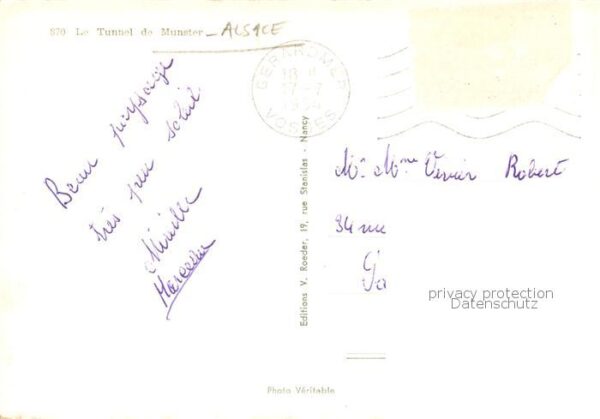 870 Le Tunnel de Munster - ALSACE
GERARDMER
VOSGES
Beau paysage
très peu soleil
Mireille
Editions V. Roeder, 19, rue Stanislas - Nancy
Mr Mme Robert
34 rue
privacy protection
Datenschutz
Photo Véritable